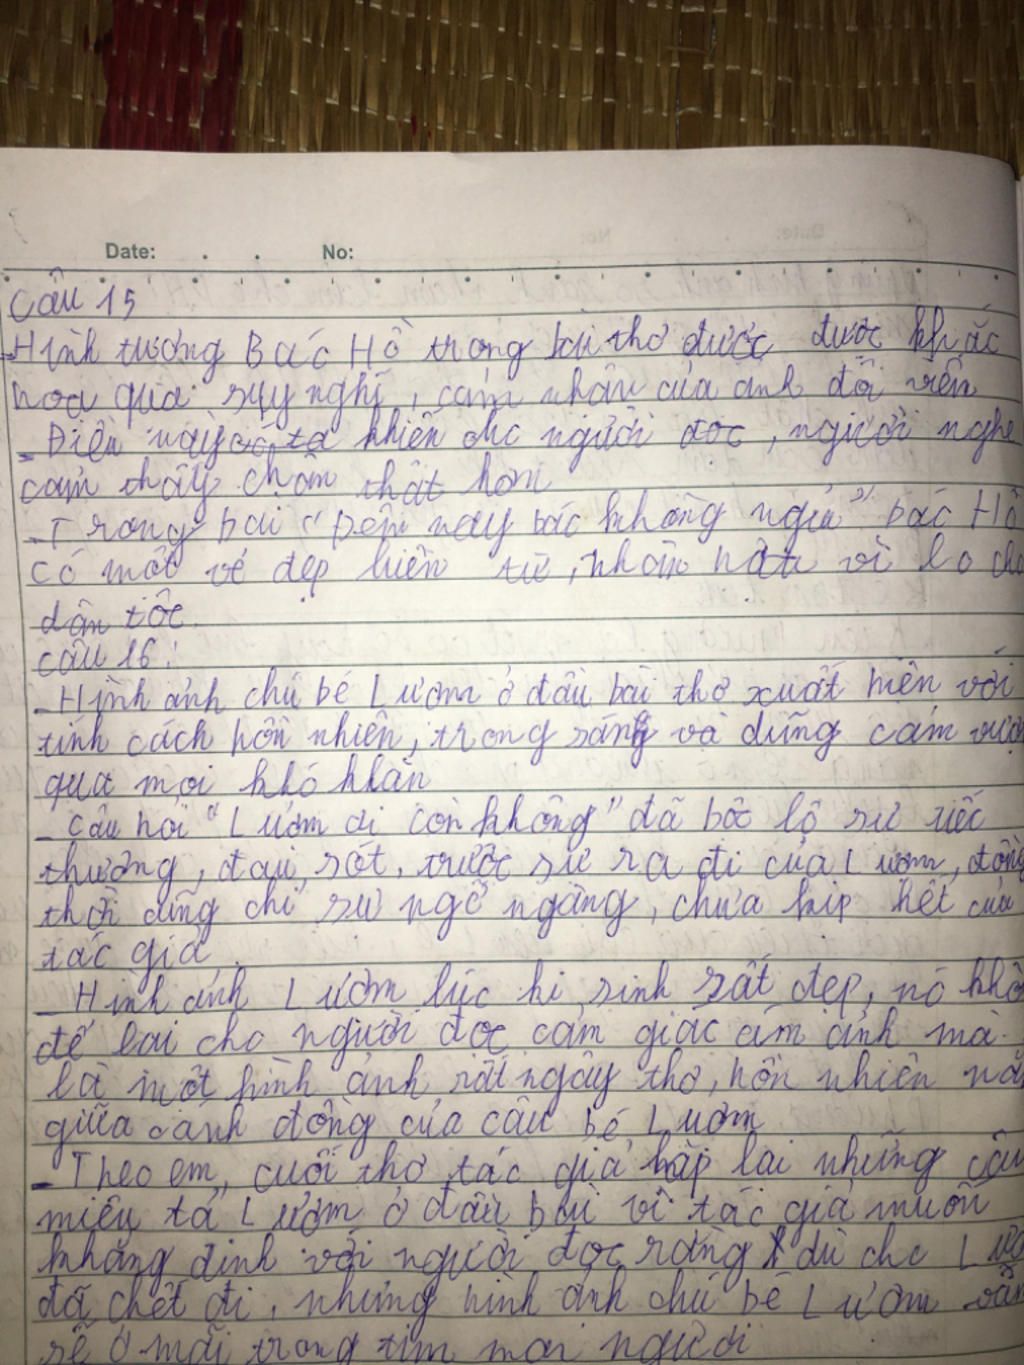 Date: . . No:
Câu 15
Hình tượng Bác Hồ trong bài thơ được được khắc
hoạ qua suy nghĩ, cảm nhận của anh đội viên
- Điều này khiến cho người đọc, người nghe
cảm thấy chân thật hơn
- Trong bài "Đêm nay bác không ngủ" bác Hồ
có một vẻ đẹp hiền từ, nhân hậu vì lo cho
dân tộc.
Câu 16:
- Hình ảnh chú bé Lượm ở đầu bài thơ xuất hiện với
tính cách hồn nhiên, trong sáng và dũng cảm vượt
qua mọi khó khăn
- Câu hỏi "Lượm ơi còn không" đã bộc lộ sự tiếc
thương, đau sót, trước sự ra đi của Lượm, đồng
thời cũng chỉ sự ngỡ ngàng, chưa kịp hết của
tác giả
- Hình ảnh Lượm lúc hi sinh rất đẹp, nó
để lại cho người đọc cảm giác ám ảnh mà
là một hình ảnh rất ngây thơ, hồn nhiên
giữa cánh đồng của cậu bé Lượm
- Theo em, cuối thơ tác giả lặp lại những câu
miêu tả Lượm ở đầu bài vì tác giả muốn
khẳng định với người đọc rằng dù cho
đã chết đi, nhưng hình ảnh chú bé Lượm vẫn
sẽ ở mãi trong tim mọi người